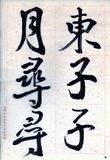 東子子
月尋尋